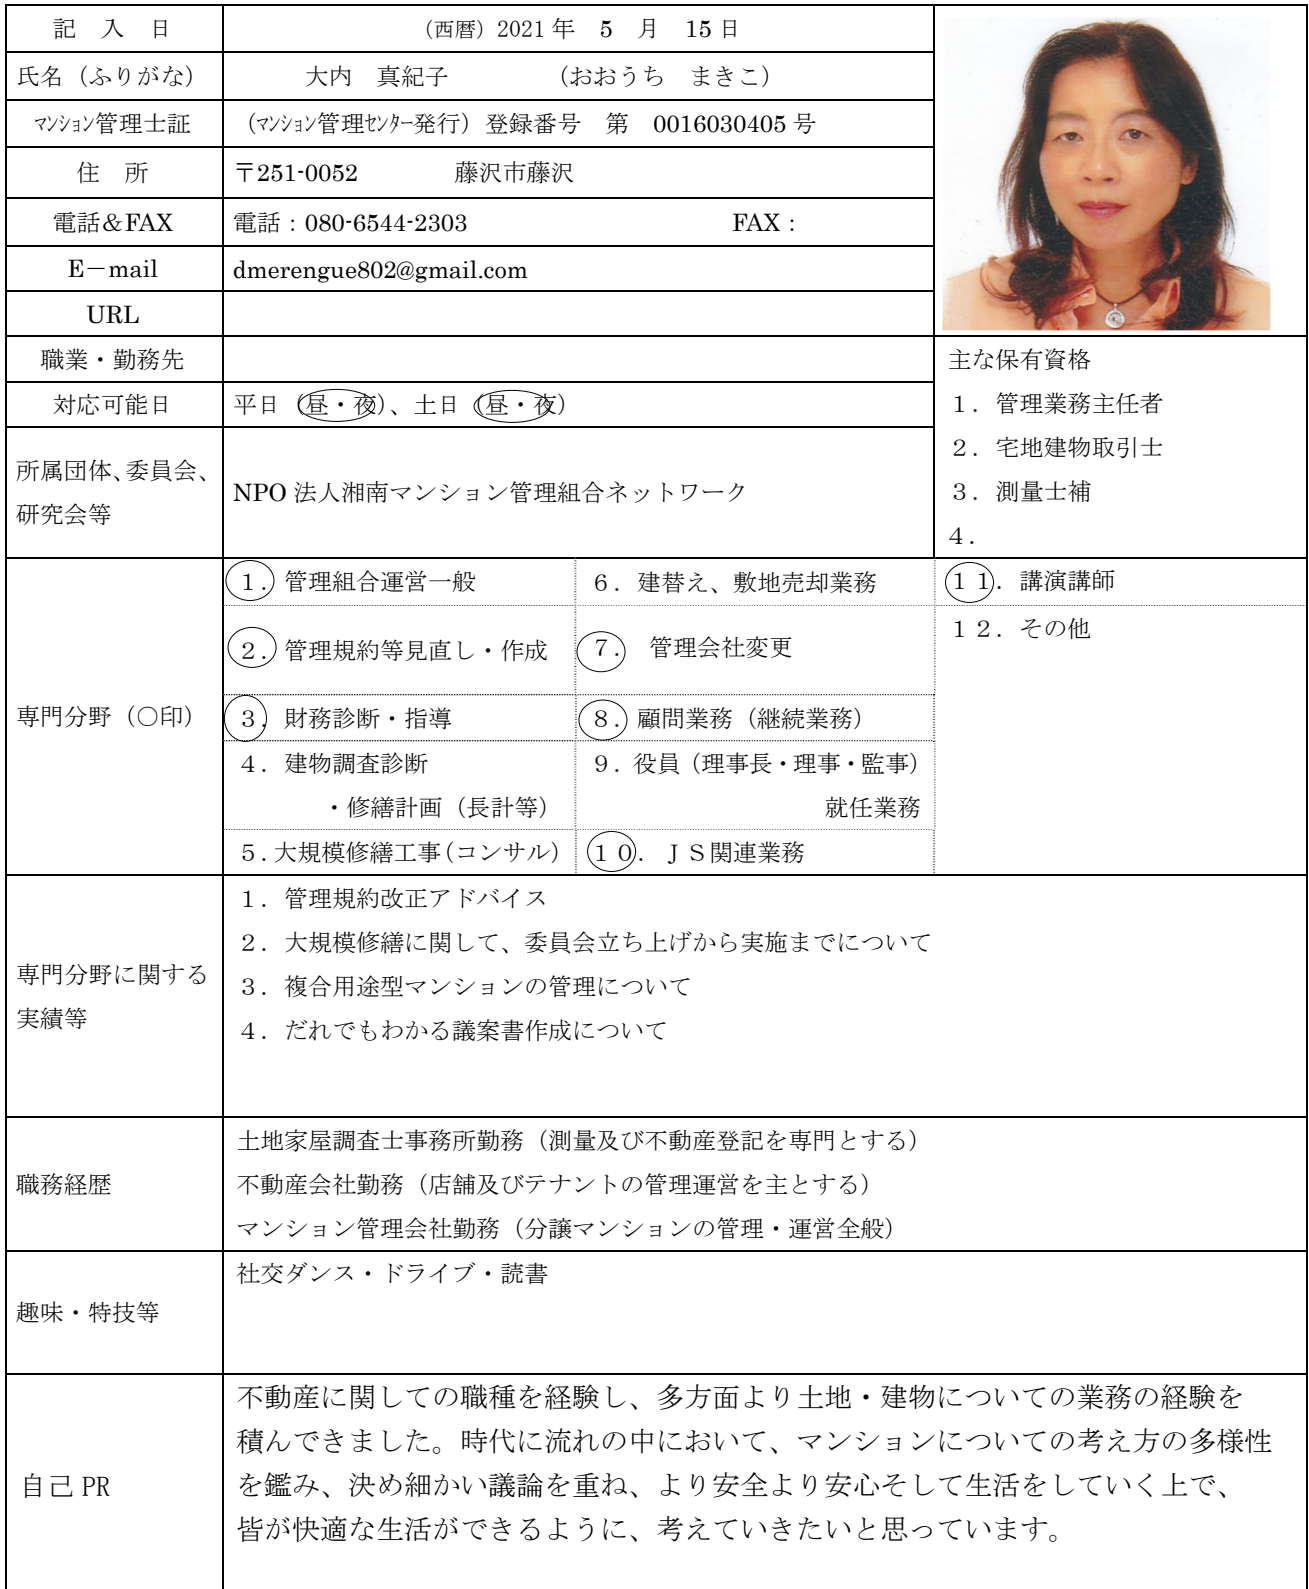 記 入 日 （西暦）2021 年 5 月 15 日
氏名（ふりがな） 大内 真紀子 （おおうち まきこ）
ﾏﾝｼｮﾝ管理士証 （ﾏﾝｼｮﾝ管理ｾﾝﾀｰ発行）登録番号 第 0016030405 号
住 所 〒251-0052 藤沢市藤沢
電話＆FAX 電話：080-6544-2303 FAX：
E－mail dmerengue802@gmail.com
URL
職業・勤務先
対応可能日 平日（昼・夜）、土日（昼・夜）
所属団体、委員会、
研究会等
NPO 法人湘南マンション管理組合ネットワーク
主な保有資格
１．管理業務主任者
２．宅地建物取引士
３．測量士補
４．
専門分野（○印）
１．管理組合運営一般
２．管理規約等見直し・作成
３．財務診断・指導
４．建物調査診断
・修繕計画（長計等）
５．大規模修繕工事（コンサル）
６．建替え、敷地売却業務
７． 管理会社変更
８．顧問業務（継続業務）
９．役員（理事長・理事・監事）
就任業務
１０．ＪＳ関連業務
１１．講演講師
１２．その他
専門分野に関する
実績等
１．管理規約改正アドバイス
２．大規模修繕に関して、委員会立ち上げから実施までについて
３．複合用途型マンションの管理について
４．だれでもわかる議案書作成について
職務経歴
土地家屋調査士事務所勤務（測量及び不動産登記を専門とする）
不動産会社勤務（店舗及びテナントの管理運営を主とする）
マンション管理会社勤務（分譲マンションの管理・運営全般）
趣味・特技等
社交ダンス・ドライブ・読書
自己 PR
不動産に関しての職種を経験し、多方面より土地・建物についての業務の経験を
積んできました。時代に流れの中において、マンションについての考え方の多様性
を鑑み、決め細かい議論を重ね、より安全より安心そして生活をしていく上で、
皆が快適な生活ができるように、考えていきたいと思っています。